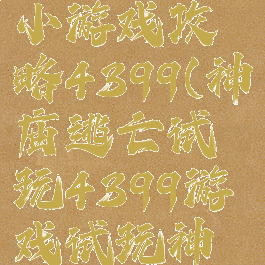 小游戏攻
略4399(神
庙逃亡试
玩4399游
戏试玩神